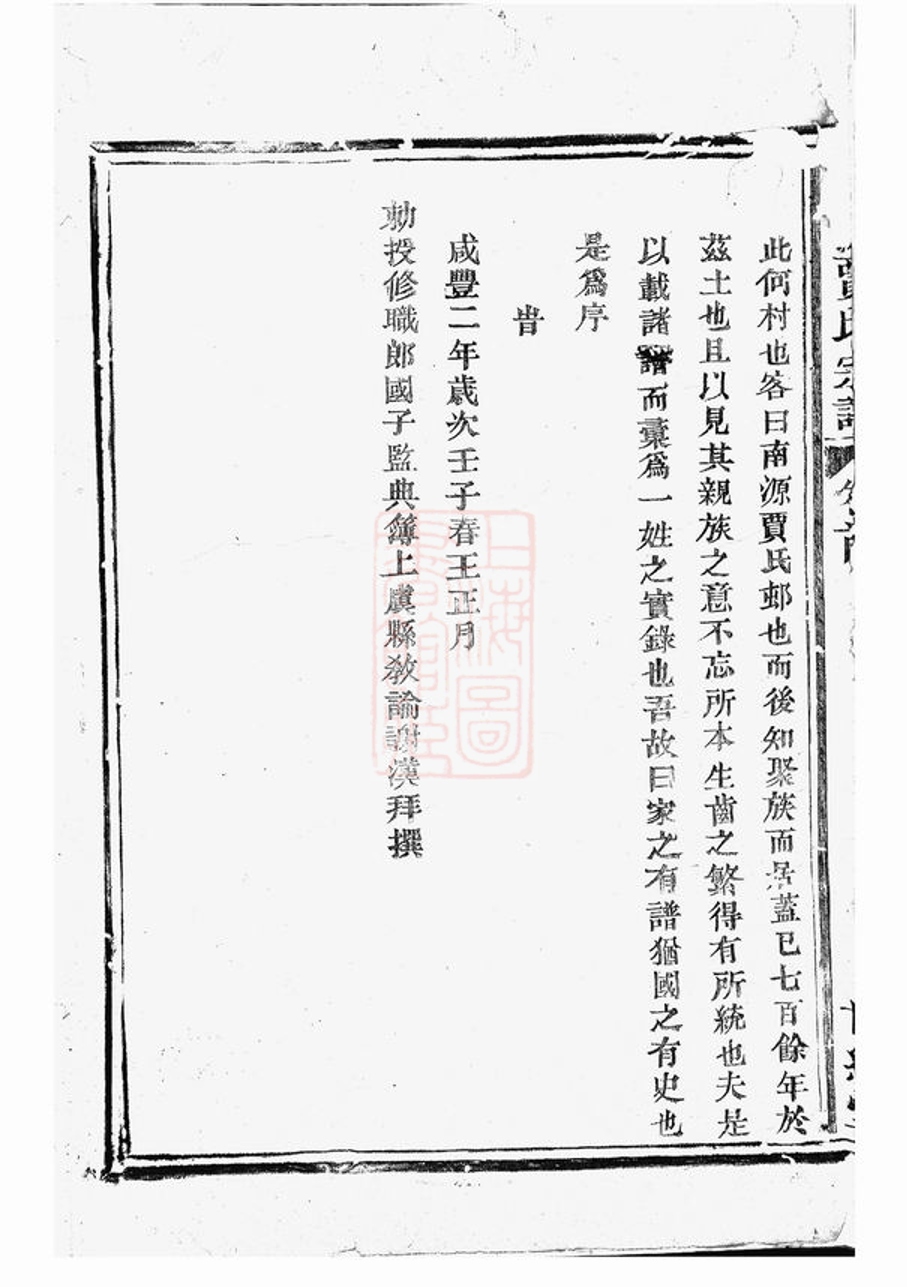 賈氏宗譜
此何村也客曰南源賈氏邨也而後知聚族而居蓋已七百餘年於
茲土也且以見其親族之意不忘所本生齒之繁得有所統也夫是
以載諸譜而彙爲一姓之實錄也吾故曰家之有譜猶國之有史也
是爲序
旹
咸豐二年歲次壬子春王正月
勅授修職郎國子監典簿上虞縣教諭謝漢拜撰
上海圖